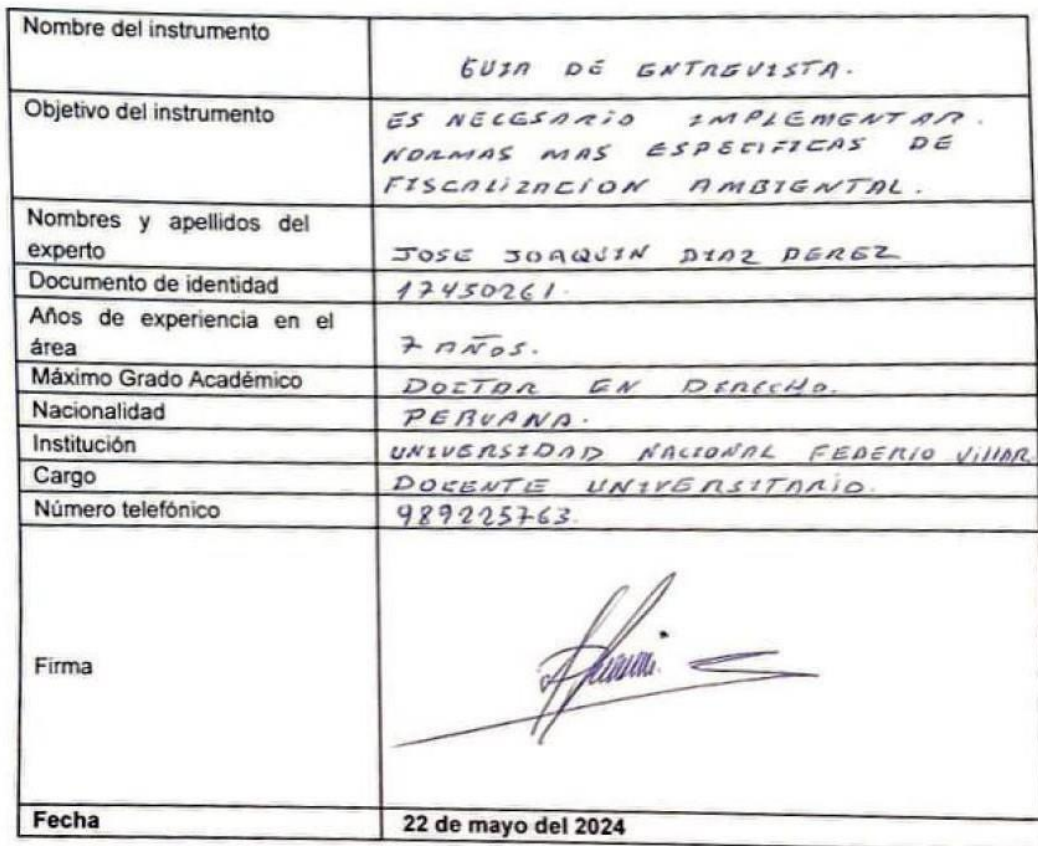 Nombre del instrumento
GUIA DE ENTREVISTA.
Objetivo del instrumento
ES NECESARIO IMPLEMENTAR.
NORMAS MAS ESPECIFICAS DE
FISCALIZACION AMBIENTAL.
Nombres y apellidos del
experto
JOSE JOAQUIN DIAZ PEREZ
Documento de identidad
17450261.
Años de experiencia en el
área
7 AÑOS.
Máximo Grado Académico
DOCTOR EN DERECHO.
Nacionalidad
PERUANA.
Institución
UNIVERSIDAD NACIONAL FEDERIO VillAR
Cargo
DOCENTE UNIVERSITARIO.
Número telefónico
989225763.
Firma
Fecha
22 de mayo del 2024